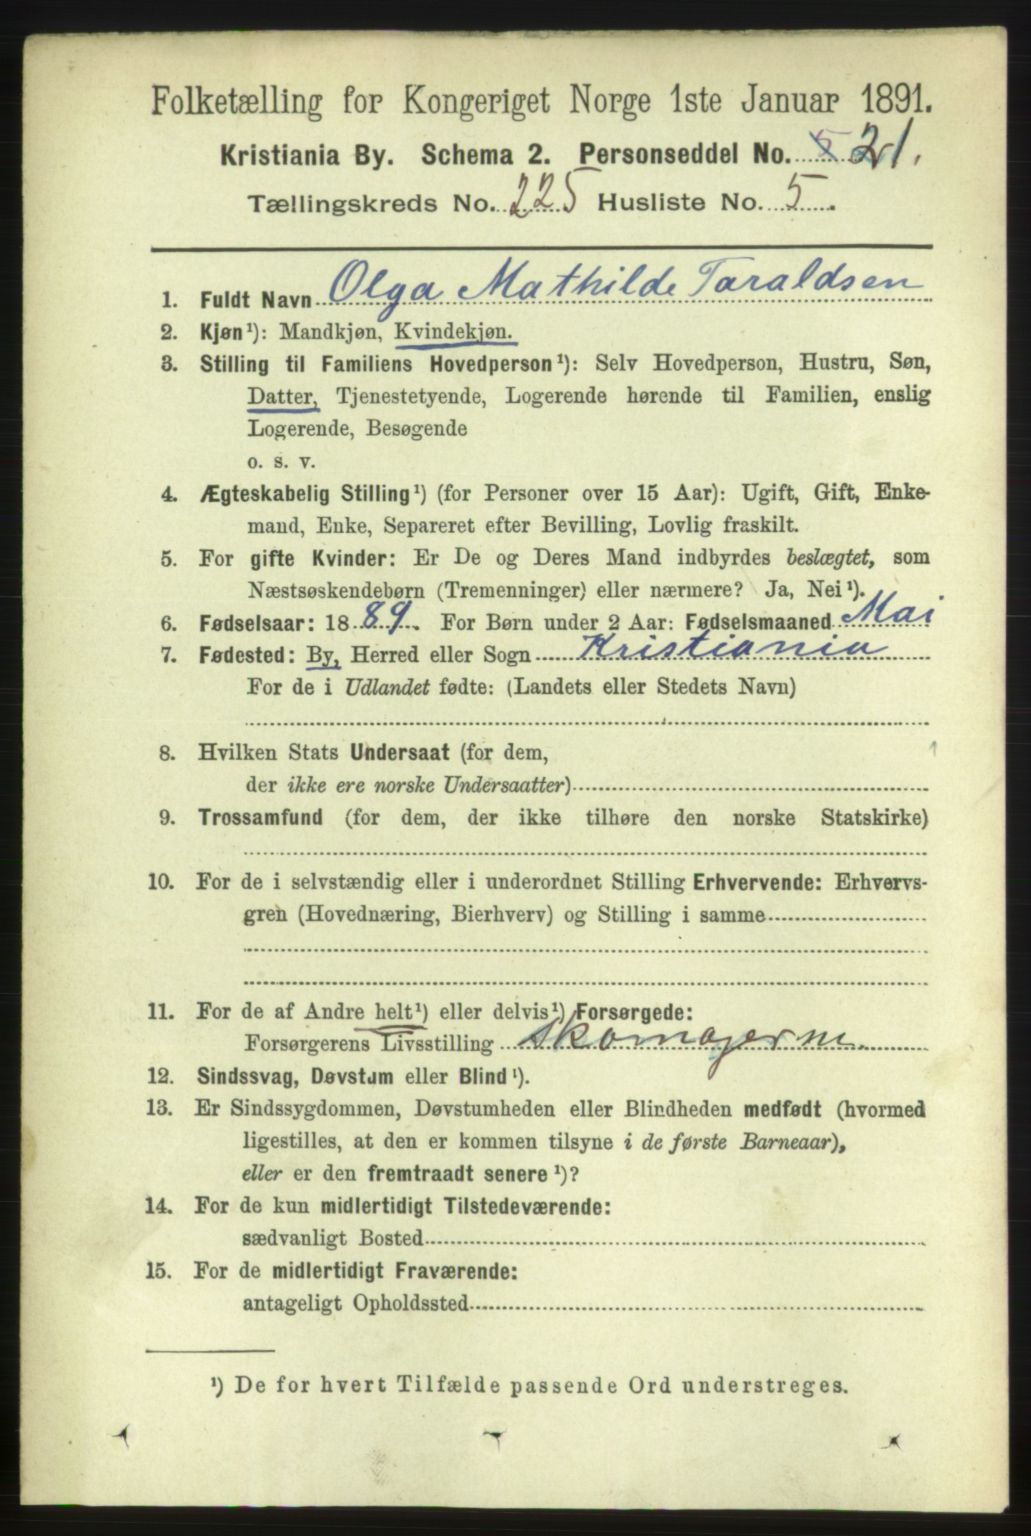 Folketælling for Kongeriget Norge 1ste Januar 1891.
Kristiania By. Schema 2. Personseddel No. 5 21.
Tællingskreds No. 225 Husliste No. 5
1. Fuldt Navn Olga Mathilde Taraldsen
2. Kjøn¹): Mandkjøn, Kvindekjøn.
3. Stilling til Familiens Hovedperson¹): Selv Hovedperson, Hustru, Søn,
Datter, Tjenestetyende, Logerende hørende til Familien, enslig
Logerende, Besøgende
o. s. v.
4. Ægteskabelig Stilling¹) (for Personer over 15 Aar): Ugift, Gift, Enke-
mand, Enke, Separeret efter Bevilling, Lovlig fraskilt.
5. For gifte Kvinder: Er De og Deres Mand indbyrdes beslægtet, som
Næstsøskendebørn (Tremenninger) eller nærmere? Ja, Nei¹).
6. Fødselsaar: 1889. For Børn under 2 Aar: Fødselsmaaned Mai
7. Fødested: By, Herred eller Sogn Kristiania
For de i Udlandet fødte: (Landets eller Stedets Navn)
8. Hvilken Stats Undersaat (for dem,
der ikke ere norske Undersaatter)
9. Trossamfund (for dem, der ikke tilhøre den norske Statskirke)
10. For de i selvstændig eller i underordnet Stilling Erhvervende: Erhvervs-
gren (Hovednæring, Bierhverv) og Stilling i samme
11. For de af Andre helt¹) eller delvis¹) Forsørgede:
Forsørgerens Livsstilling
12. Sindssvag, Døvstum eller Blind¹).
13. Er Sindssygdommen, Døvstumheden eller Blindheden medfødt (hvormed
ligestilles, at den er kommen tilsyne i de første Barneaar),
eller er den fremtraadt senere¹)?
14. For de kun midlertidigt Tilstedeværende:
sædvanligt Bosted
15. For de midlertidigt Fraværende:
antageligt Opholdssted
¹) De for hvert Tilfælde passende Ord understreges.